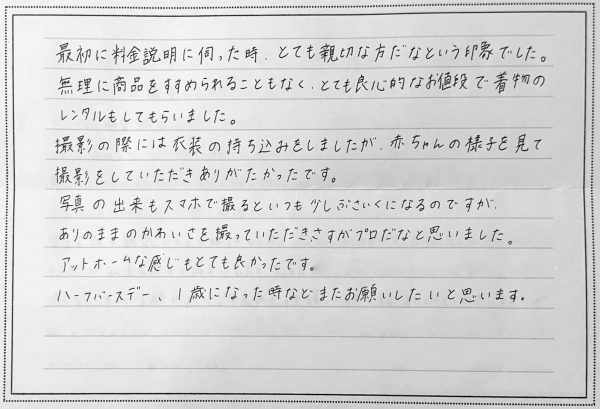 最初に料金説明に伺った時、とても親切な方だなという印象でした。
無理に商品をすすめられることもなく、とても良心的なお値段で着物の
レンタルもしてもらいました。
撮影の際には衣装の持ち込みをしましたが、赤ちゃんの様子を見て
撮影をしていただきありがたかったです。
写真の出来もスマホで撮るといつも少しぶさいくになるのですが、
ありのままのかわいさを撮っていただきさすがプロだなと思いました。
アットホームな感じもとても良かったです。
ハーフバースデー、1歳になった時などまたお願いしたいと思います。